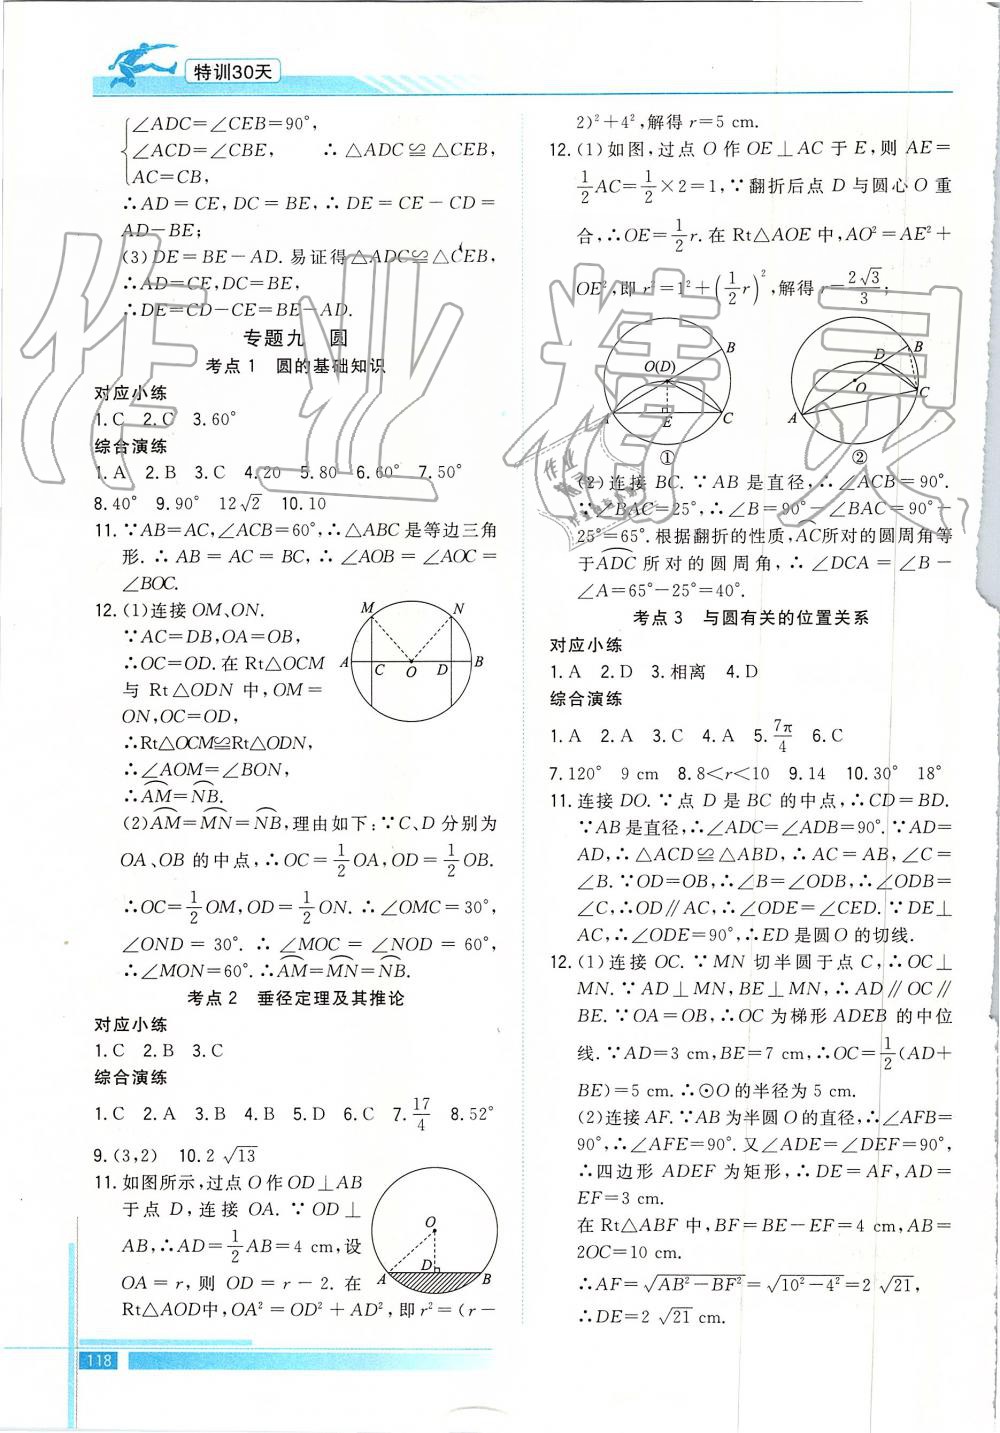 特训30天
∠ADC=∠CEB=90°,
∠ACD=∠CBE, ∴△ADC≌△CEB,
AC=CB,
∴AD=CE,DC=BE,∴DE=CE-CD=
AD-BE;
(3)DE=BE-AD.易证得△ADC≌△CEB,
∴AD=CE,DC=BE,
∴DE=CD-CE=BE-AD.
专题九 圆
考点1 圆的基础知识
对应小练
1.C 2.C 3.60°
综合演练
1.A 2.B 3.C 4.20 5.80 6.60° 7.50°
8.40° 9.90° 12√2 10.10
11.∵AB=AC,∠ACB=60°,∴△ABC是等边三角
形.∴AB=AC=BC,∴∠AOB=∠AOC=
∠BOC.
12.(1)连接OM、ON.
∵AC=DB,OA=OB,
∴OC=OD.在Rt△OCM
与Rt△ODN中,OM=
ON,OC=OD,
∴Rt△OCM≌Rt△ODN,
∴∠AOM=∠BON,
∴AM=NB.
M N A C O D B
(2)AM=MN=NB,理由如下:∵C、D分别为
OA、OB的中点,∴OC=1/2OA,OD=1/2OB.
∴OC=1/2OM,OD=1/2ON.∴∠OMC=30°,
∠OND=30°.∴∠MOC=∠NOD=60°,
∴∠MON=60°.∴AM=MN=NB.
考点2 垂径定理及其推论
对应小练
1.C 2.B 3.C
综合演练
1.C 2.A 3.B 4.B 5.D 6.C 7.17/4 8.52°
9.(3,2) 10.2√13
11.如图所示,过点O作OD⊥AB
于点D,连接OA.∵OD⊥
AB,∴AD=1/2AB=4 cm,设
OA=r,则OD=r-2.在
Rt△AOD中,OA²=OD²+AD²,即r²=(r-
O A D B
2)²+4²,解得r=5 cm.
12.(1)如图,过点O作OE⊥AC于E,则AE=
1/2AC=1/2×2=1,∵翻折后点D与圆心O重
合,∴OE=1/2r.在Rt△AOE中,AO²=AE²+
OE²,即r²=1²+(1/2r)²,解得r=2√3/3;
O(D) B A E C
①
D B O C A
②
(2)连接BC.∵AB是直径,∴∠ACB=90°.
∵∠BAC=25°,∴∠B=90°-∠BAC=90°-
25°=65°.根据翻折的性质,AC所对的圆周角等
于ADC所对的圆周角,∴∠DCA=∠B-
∠A=65°-25°=40°.
考点3 与圆有关的位置关系
对应小练
1.A 2.D 3.相离 4.D
综合演练
1.A 2.A 3.C 4.A 5.7π/4 6.C
7.120° 9 cm 8.8<r<10 9.14 10.30° 18°
11.连接DO.∵点D是BC的中点,∴CD=BD.
∵AB是直径,∴∠ADC=∠ADB=90°.∵AD=
AD,∴△ACD≌△ABD,∴AC=AB,∠C=
∠B.∵OD=OB,∴∠B=∠ODB,∴∠ODB=
∠C,∴OD∥AC,∴∠ODE=∠CED.∵DE⊥
AC,∴∠ODE=90°,∴ED是圆O的切线.
12.(1)连接OC.∵MN切半圆于点C,∴OC⊥
MN.∵AD⊥MN,BE⊥MN,∴AD∥OC∥
BE.∵OA=OB,∴OC为梯形ADEB的中位
线.∵AD=3 cm,BE=7 cm,∴OC=1/2(AD+
BE)=5 cm.∴⊙O的半径为5 cm.
(2)连接AF.∵AB为半圆O的直径,∴∠AFB=
90°,∴∠AFE=90°.又∠ADE=∠DEF=90°,
∴四边形ADEF为矩形,∴DE=AF,AD=
EF=3 cm.
在Rt△ABF中,BF=BE-EF=4 cm,AB=
2OC=10 cm.
∴AF=√(AB²-BF²)=√(10²-4²)=2√21,
∴DE=2√21 cm.
118
作业精灵